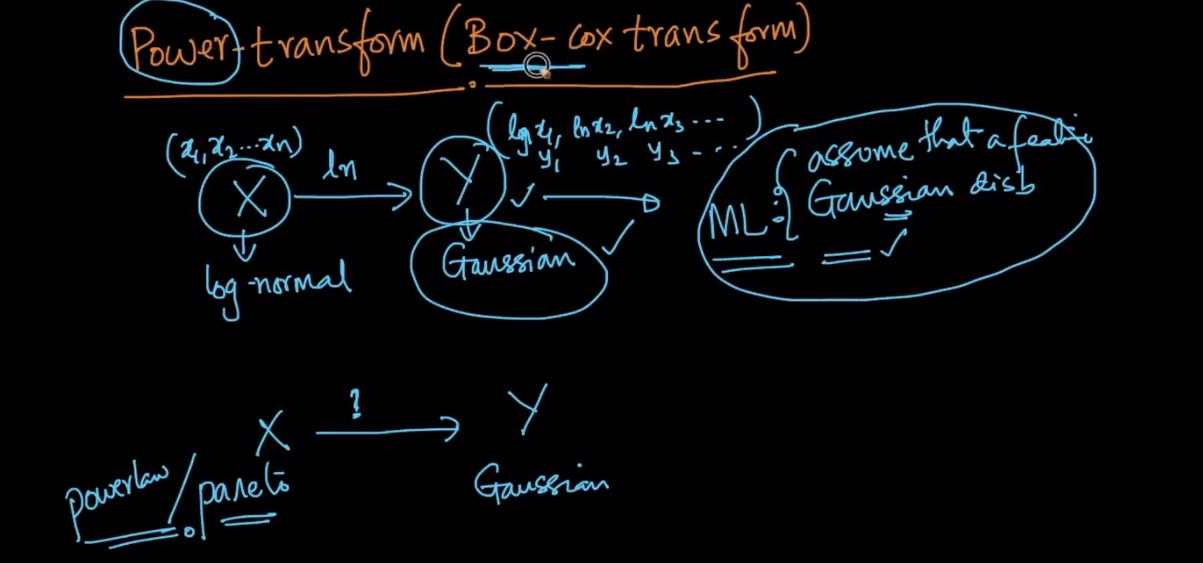 Power-transform (Box-cox transform)
(x1, x2...xn) ln (log x1, ln x2, ln x3 ...)
y1 y2 y3 - ...
X Y
log-normal Gaussian
ML: { assume that a featu
Gaussian disb
X ? Y
powerlaw / pareto Gaussian